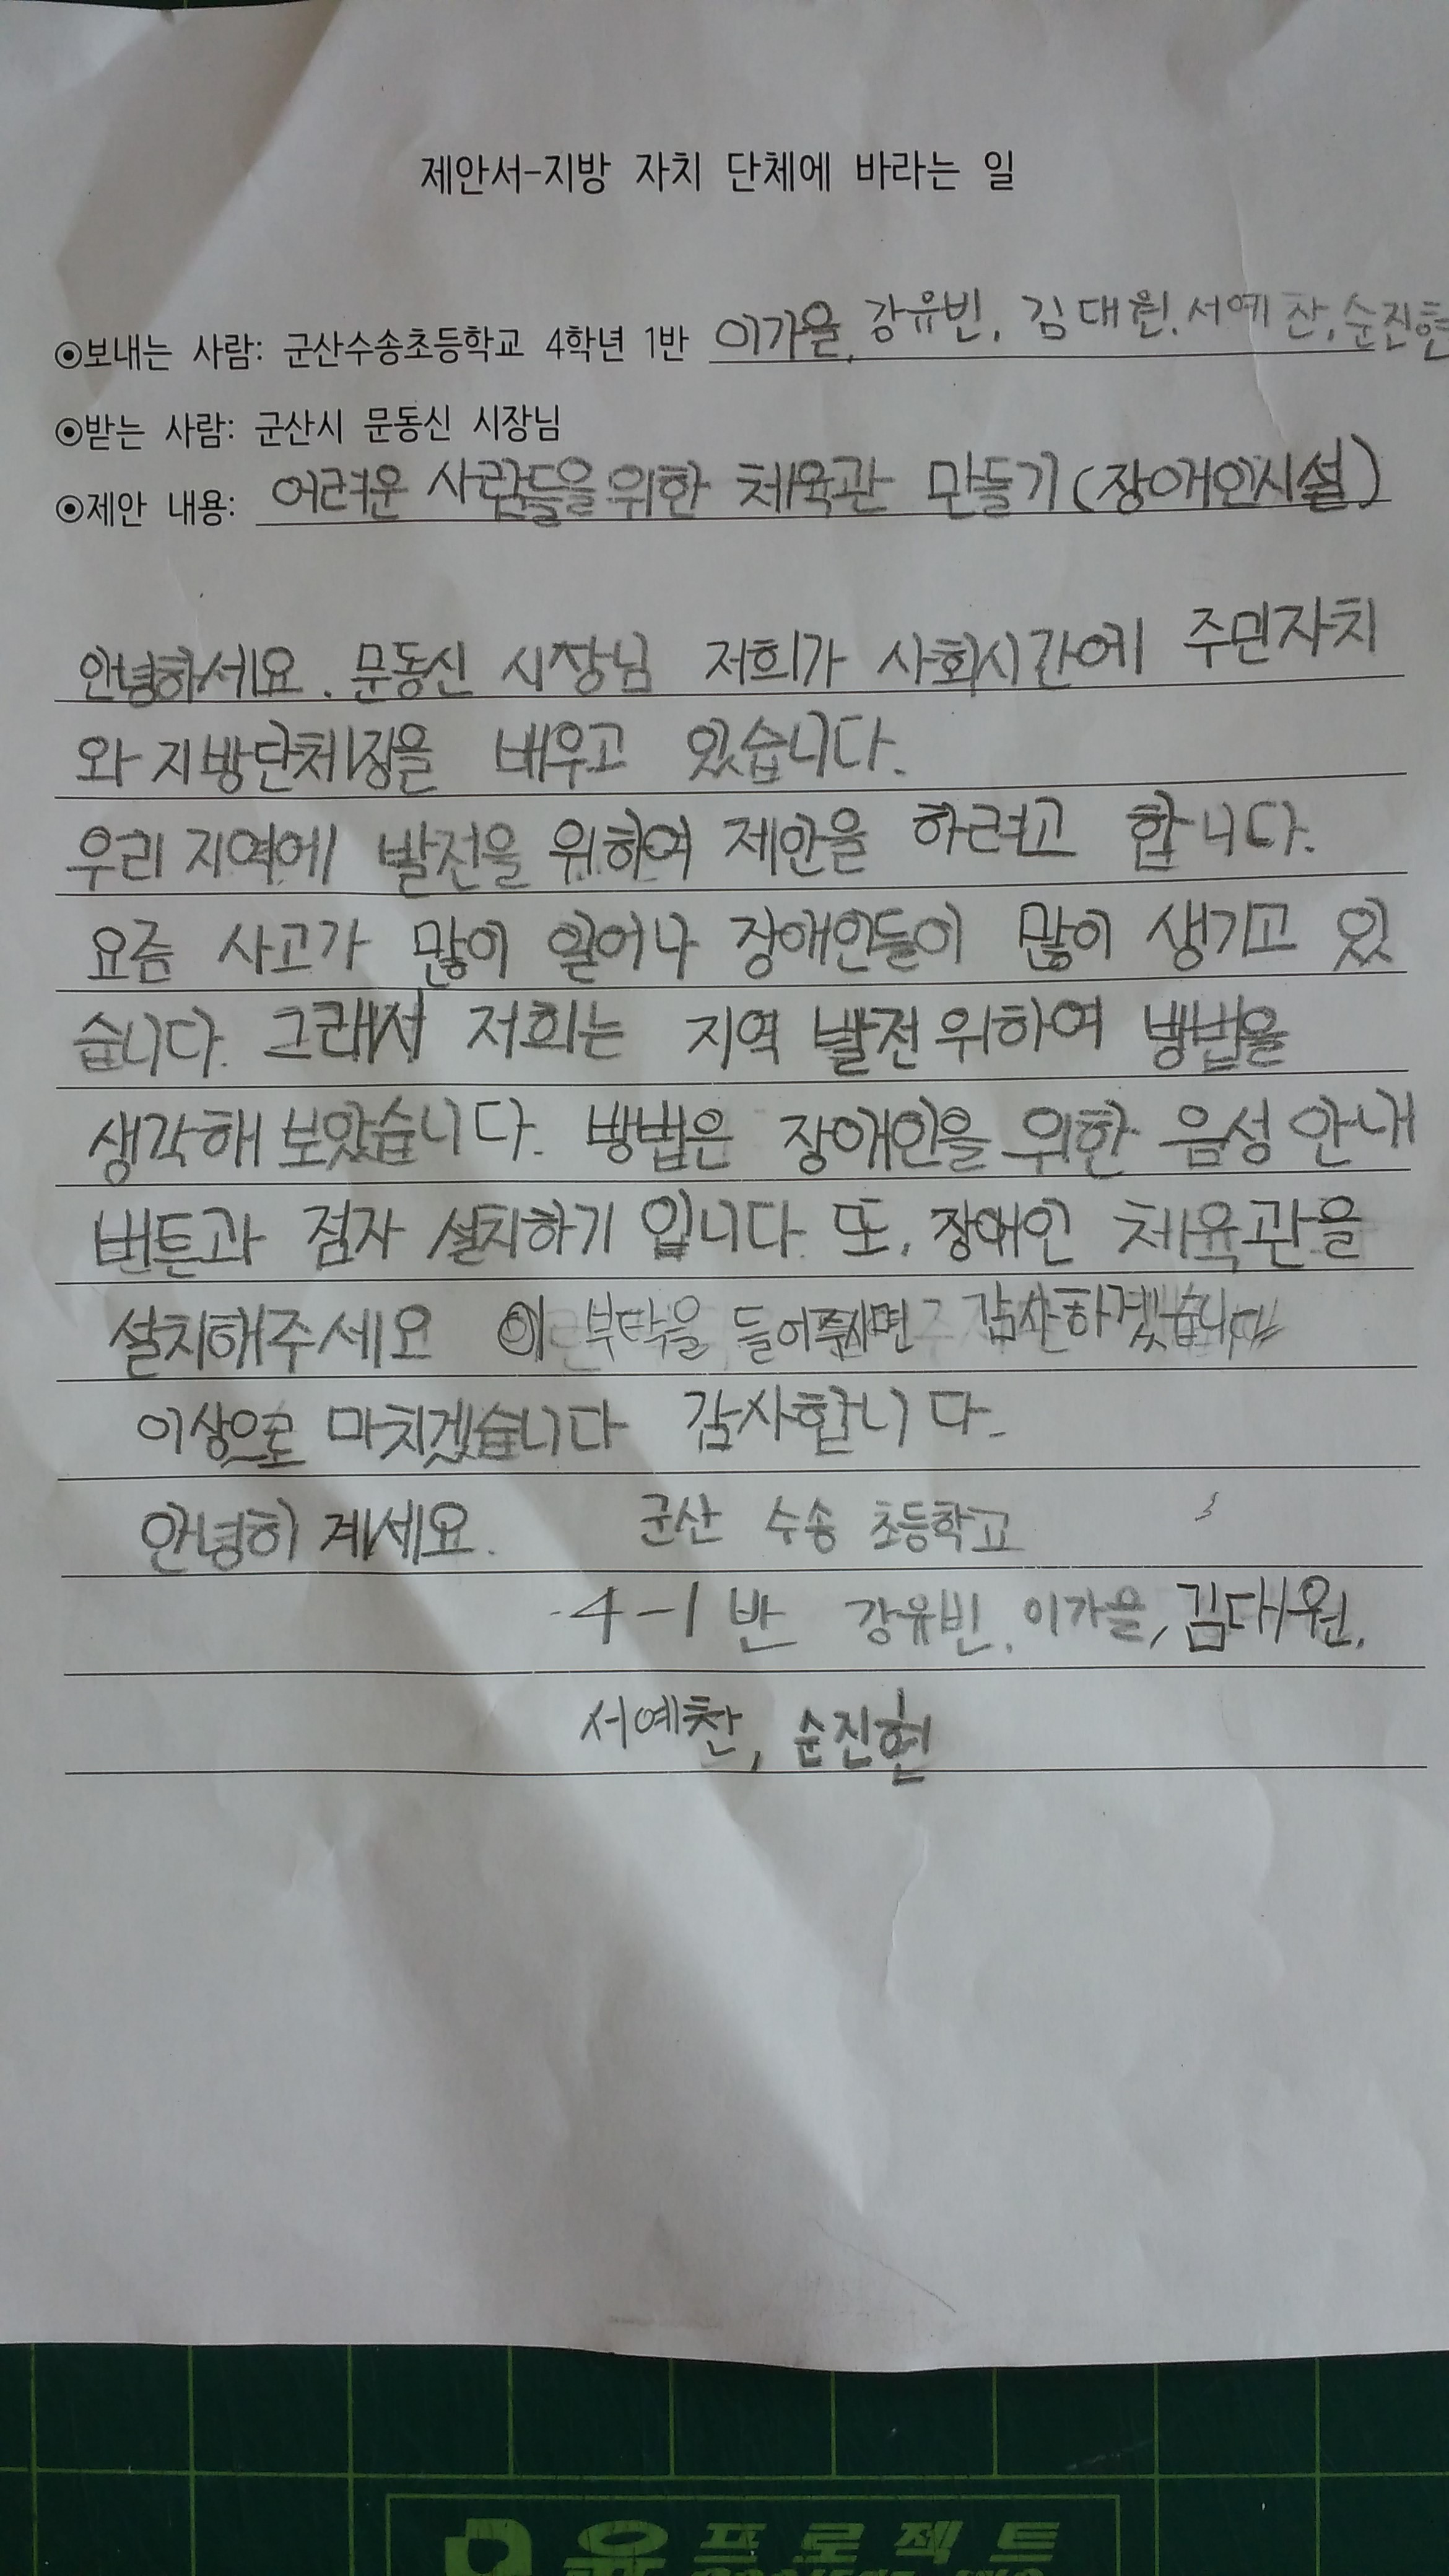 제안서-지방 자치 단체에 바라는 일
⊙보내는 사람: 군산수송초등학교 4학년 1반 이가을, 강유빈, 김대원, 서예찬, 순진현
⊙받는 사람: 군산시 문동신 시장님
⊙제안 내용: 어려운 사람들을 위한 체육관 만들기(장애인시설)
안녕하세요. 문동신 시장님 저희가 사회시간에 주민자치
와 지방단체장을 배우고 있습니다.
우리 지역에 발전을 위하여 제안을 하려고 합니다.
요즘 사고가 많이 일어나 장애인들이 많이 생기고 있
습니다. 그래서 저희는 지역 발전 위하여 방법을
생각해 보았습니다. 방법은 장애인을 위한 음성 안내
버튼과 점자 설치하기 입니다. 또, 장애인 체육관을
설치해주세요 이 부탁을 들어주시면 감사하겠습니다
이상으로 마치겠습니다 감사합니다.
안녕히 계세요. 군산 수송 초등학교
4-1반 강유빈, 이가을, 김대원,
서예찬, 순진현
유프로젝트